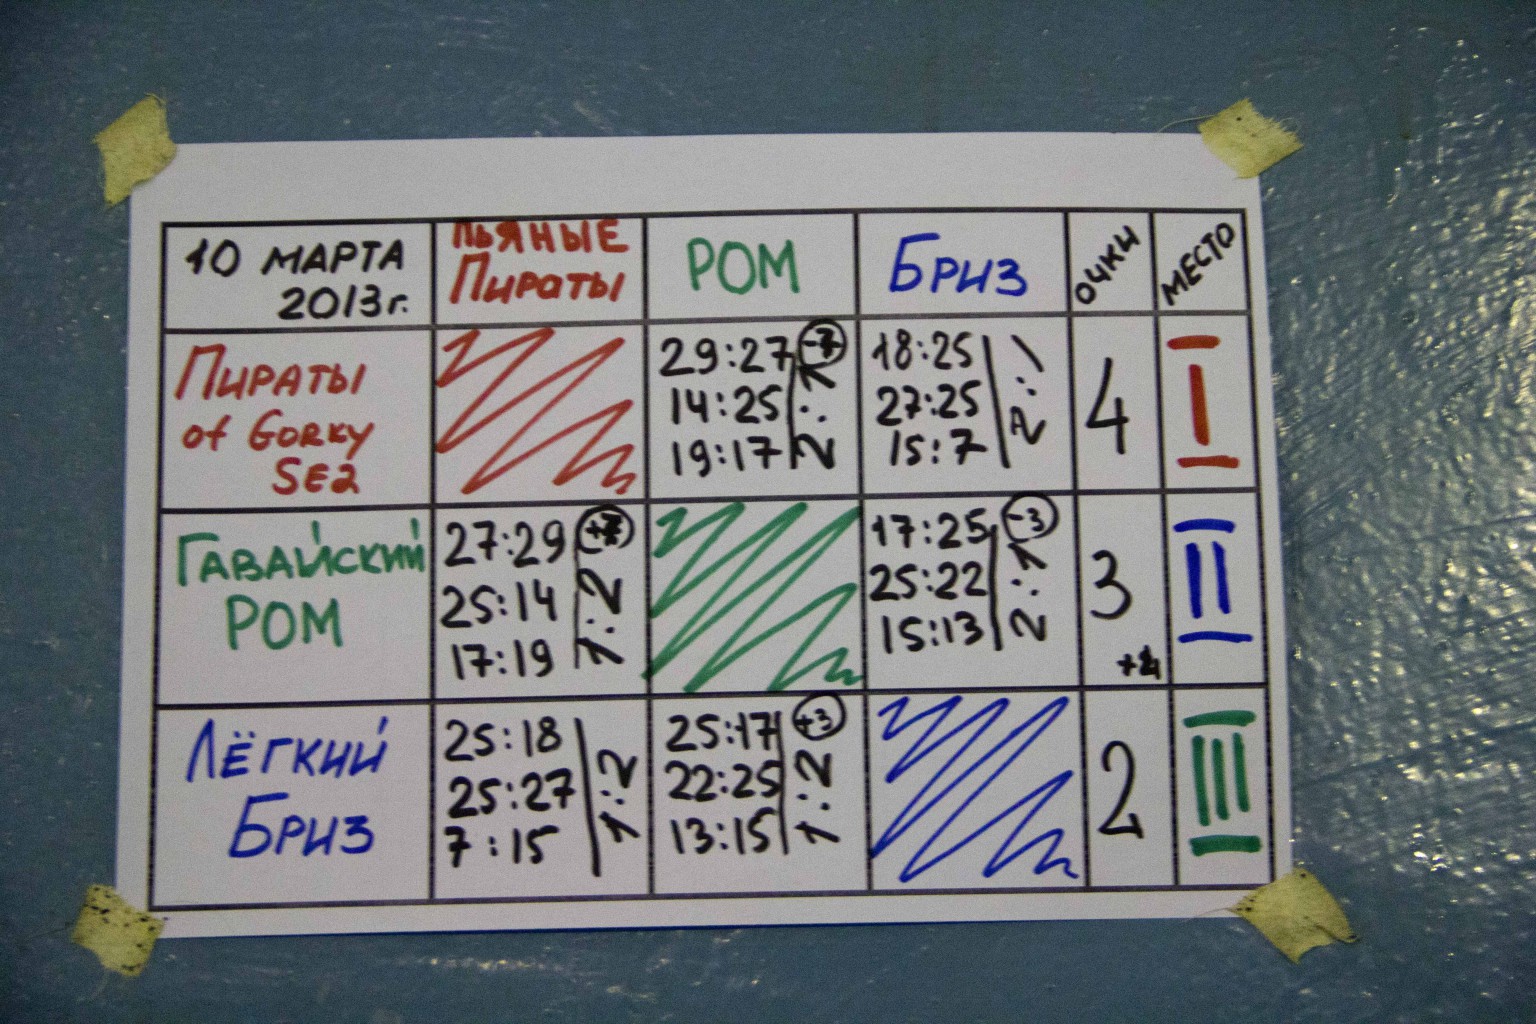 10 МАРТА
2013г.
ПЬЯНЫЕ
Пираты
РОМ
БРИЗ
ОЧКИ
МЕСТО
ПИРАТЫ
of GORKY
SE2
29:27
14:25
19:17
2:1
-7
18:25
27:25
15:7
2:1
4
I
ГАВАЙСКИЙ
РОМ
27:29
25:14
17:19
1:2
+7
17:25
25:22
15:13
2:1
-3
3
II
ЛЁГКИЙ
БРИЗ
25:18
25:27
7:15
1:2
25:17
22:25
13:15
1:2
+3
2
III